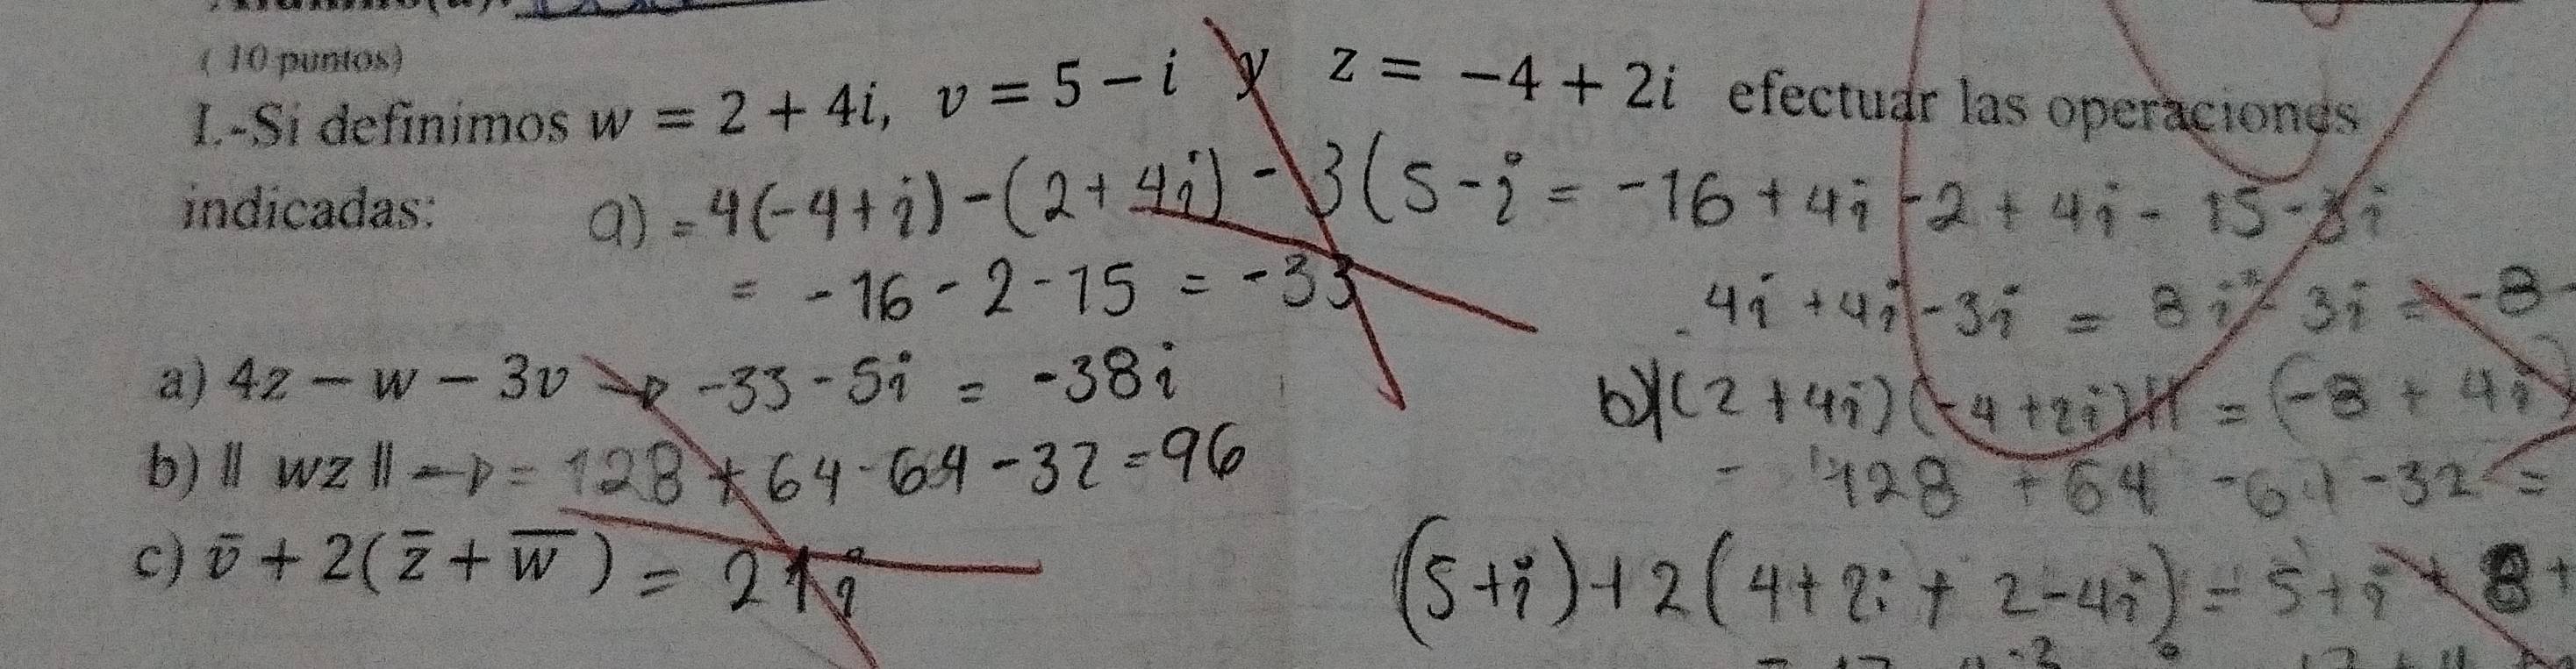 ( 10 puntos)
I.-Si definimos w = 2 + 4i, v = 5 − i y z = −4 + 2i efectuar las operaciones
indicadas:
a) = 4(-4+i)-(2+4i)-3(5-i = -16+4i-2+4i-15-3i
= -16-2-15 = -33
4i+4i-3i = 8i²-3i = -8-
a) 4z − w − 3v → -33-5i = -38i
b)‖(2+4i)(-4+2i)‖ = (-8+4i)
b) ‖ wz ‖ → = 128+64-64-32=96
- 128+64-64-32=
c) v̄ + 2( z̄ + w̄ ) = 21i
(5+i)+2(4+2i+2-4i) = 5+i+8+